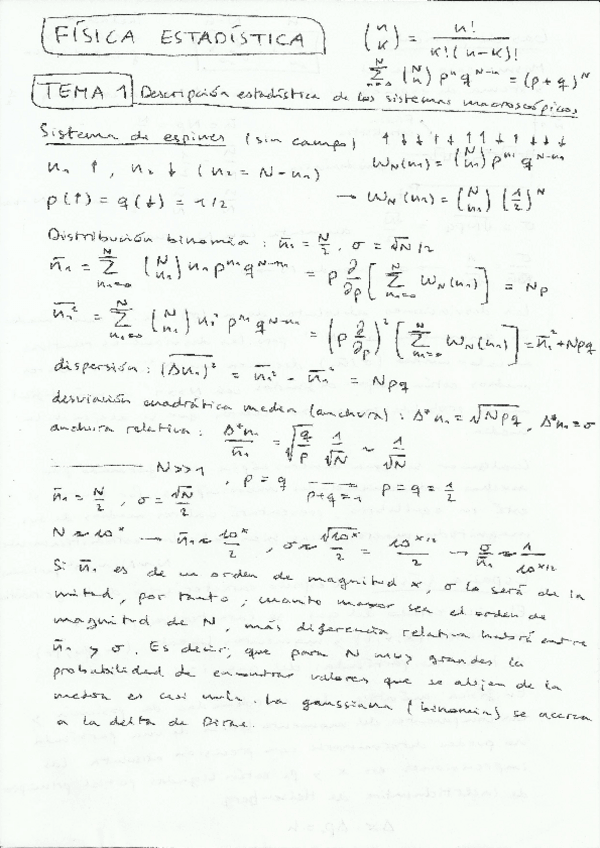 FÍSICA ESTADÍSTICA
(n K) = n! / K!(n-K)!
∑_{n=0}^{N} (N n) p^n q^{N-n} = (p+q)^N
TEMA 1 Descripción estadística de los sistemas macroscópicos
Sistema de espines (sin campo) ↑ ↓ ↓ ↑ ↓ ↑ ↑ ↓ ↑ ↓ ↓ ↓
n₁ ↑, n₂ ↓ (n₂ = N-n₁) W_N(n₁) = (N n₁) p^{n₁} q^{N-n₁}
p(↑) = q(↓) = 1/2 → W_N(n₁) = (N n₁) (1/2)^N
Distribución binomia: n̄₁ = N/2, σ = √N/2
n̄₁ = ∑_{n₁=0}^{N} (N n₁) n₁ p^{n₁} q^{N-n₁} = p ∂/∂p [∑_{n₁=0}^{N} W_N(n₁)] = Np
n₁² = ∑_{n₁=0}^{N} (N n₁) n₁² p^{n₁} q^{N-n₁} = (p ∂/∂p)² [∑_{n₁=0}^{N} W_N(n₁)] = n̄₁² + Npq
dispersión: (Δn₁)² = n₁² - n̄₁² = Npq
desviación cuadrática media (anchura): Δ*n₁ = √Npq, Δ*n₁ = σ
anchura relativa: Δ*n₁/n̄₁ = √(q/p) 1/√N ~ 1/√N
N>>1, p = q p+q=1 p = q = 1/2
n̄₁ = N/2, σ = √N/2
N ≈ 10^x → n̄₁ ≈ 10^x/2, σ ≈ √10^x/2 = 10^{x/2}/2 → σ/n̄₁ ≈ 1/10^{x/2}
Si n̄₁ es de un orden de magnitud x, σ lo será de la
mitad, por tanto, cuanto mayor sea el orden de
magnitud de N, más diferencia relativa habrá entre
n̄₁ y σ. Es decir, que para N muy grandes la
probabilidad de encontrar valores que se alejen de la
media es casi nula. La gaussiana (binomia) se acerca
a la delta de Dirac.